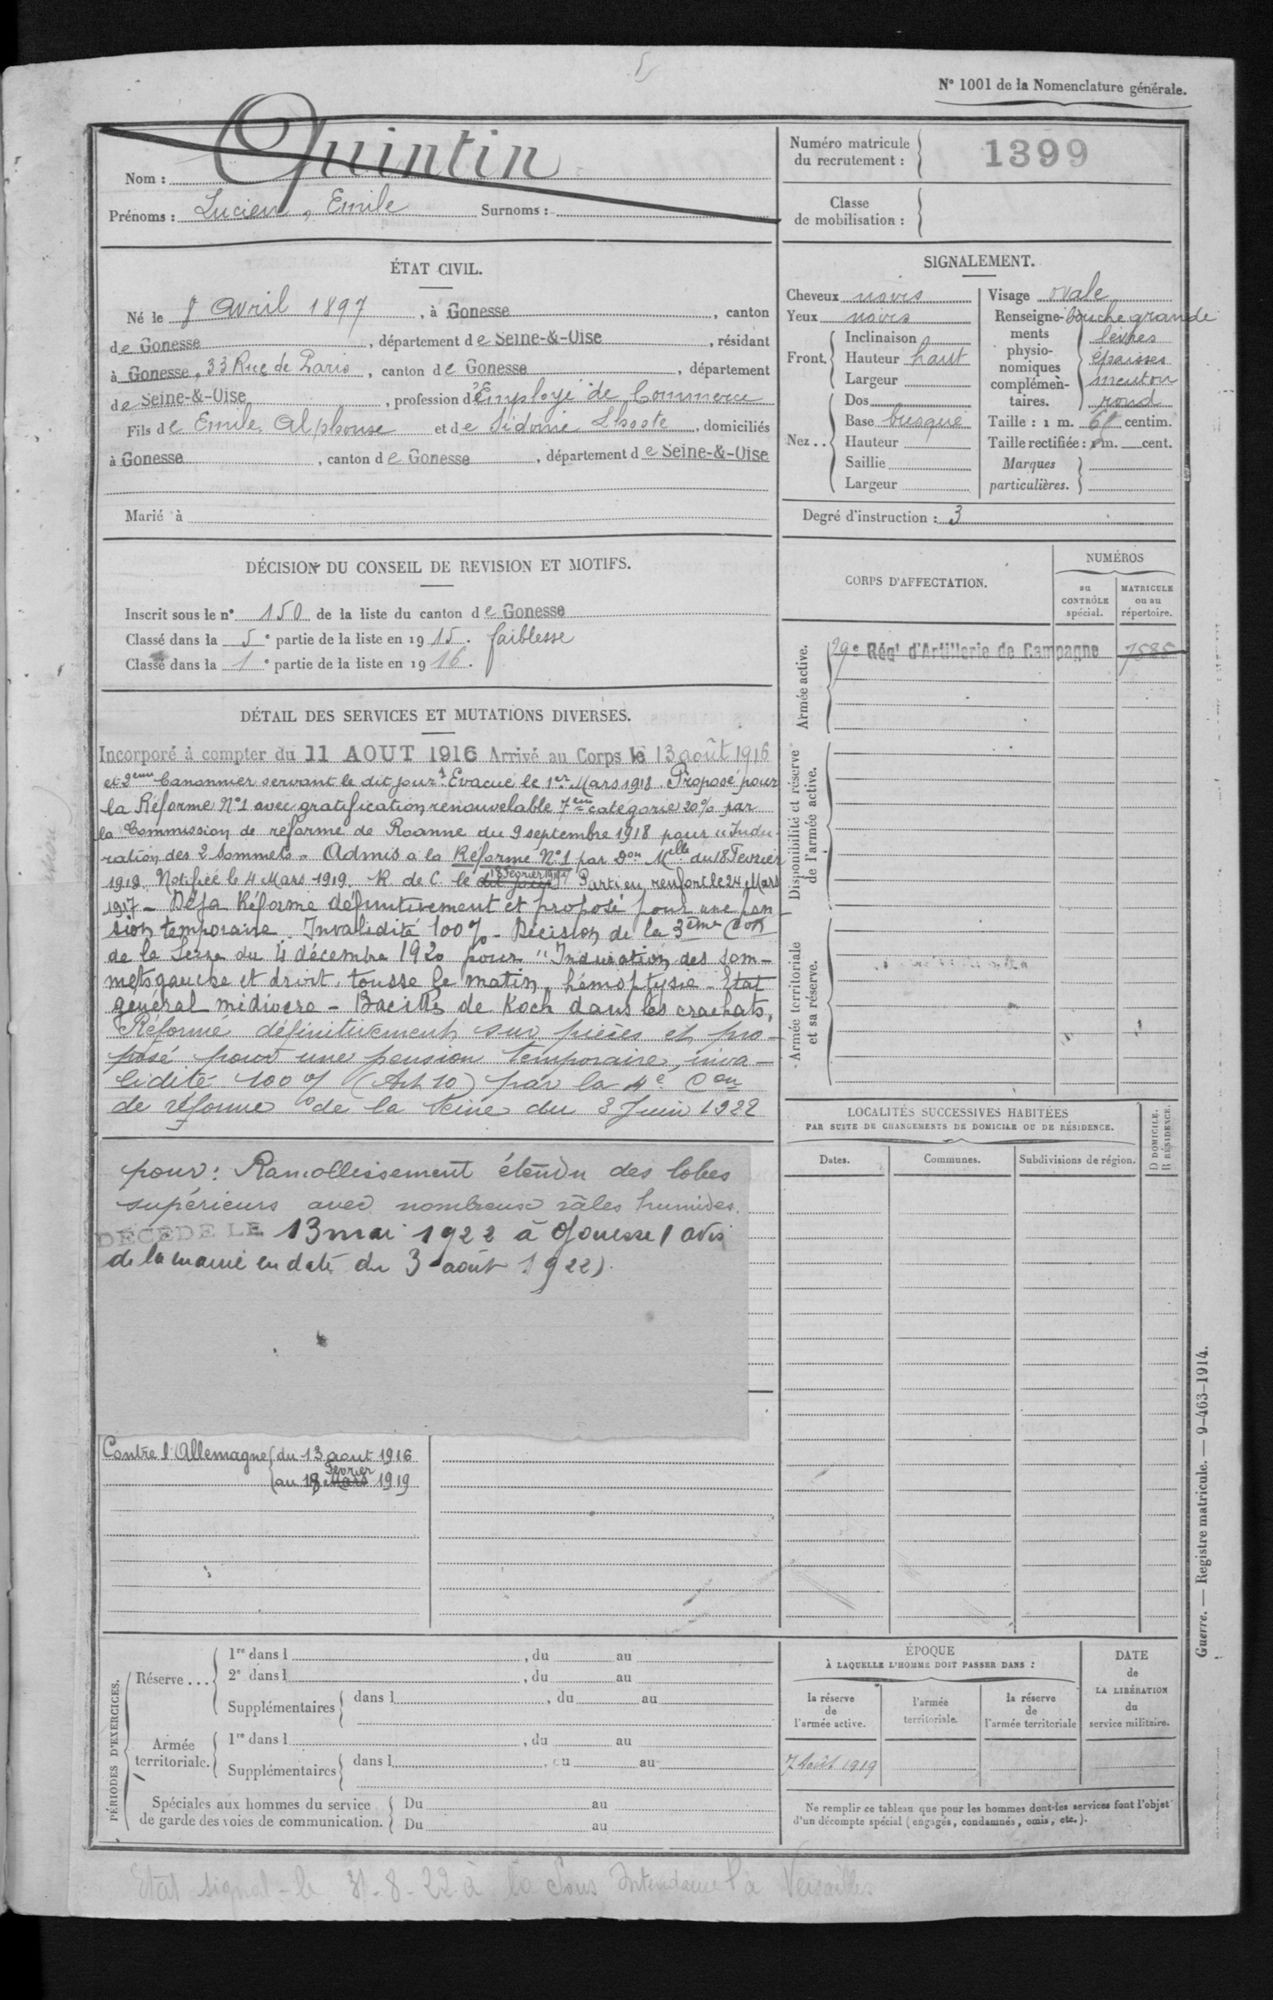 N° 1001 de la Nomenclature générale.
Nom : Quintin
Prénoms : Lucien, Emile Surnoms :
Numéro matricule du recrutement : 1399
Classe de mobilisation :
ÉTAT CIVIL.
Né le 8 Avril 1897, à Gonesse, canton
de Gonesse, département de Seine-&-Oise, résidant
à Gonesse, 33 Rue de Paris, canton de Gonesse, département
de Seine-&-Oise, profession d'Employé de Commerce
Fils de Emile Alphonse et de Sidonie Lhoste, domiciliés
à Gonesse, canton de Gonesse, département de Seine-&-Oise
Marié à
SIGNALEMENT.
Cheveux noirs
Yeux noirs
Front. Inclinaison
Hauteur haut
Largeur
Nez.. Dos
Base busqué
Hauteur
Saillie
Largeur
Visage ovale
Renseignements physionomiques complémentaires. bouche grande
lèvres
épaisses
menton
rond
Taille : 1 m. 61 centim.
Taille rectifiée : 1 m. cent.
Marques particulières.
Degré d'instruction : 3
DÉCISION DU CONSEIL DE REVISION ET MOTIFS.
Inscrit sous le n° 150 de la liste du canton de Gonesse
Classé dans la 5e partie de la liste en 1915. faiblesse
Classé dans la 1e partie de la liste en 1916.
CORPS D'AFFECTATION.
NUMÉROS
au CONTRÔLE spécial.
MATRICULE ou au répertoire.
Armée active.
29e Régt d'Artillerie de Campagne 7585
Disponibilité et réserve de l'armée active.
Armée territoriale et sa réserve.
DÉTAIL DES SERVICES ET MUTATIONS DIVERSES.
Incorporé à compter du 11 AOUT 1916 Arrivé au Corps le 13 août 1916
et 2eme Canonnier servant le dit jour. Evacué le 1er Mars 1918. Proposé pour
la Réforme N°1 avec gratification renouvelable 7eme catégorie 20% par
la Commission de réforme de Roanne du 9 septembre 1918 pour "Indu-
ration des 2 Sommets. Admis à la Réforme N°1 par Don Mlle du 18 Fevrier
1919. Notifiée le 4 Mars 1919. R. de C. le dit jour 18 Fevrier 1919 Parti en renfort le 24 Mars
1917 - Déjà Réformé définitivement et proposé pour une pen
sion temporaire. Invalidité 100% - Décision de la 3ème Con
de la Seine du 4 décembre 1920 pour "Induration des som-
mets gauche et droit, tousse le matin, hémoptysie - Etat
général médiocre - Bacilles de Koch dans les crachats,
Réformé définitivement sur pièces et pro-
posé pour une pension temporaire, inva-
lidité 100% (Art 10) par la 4e Con
de réforme de la Seine du 8 Juin 1922
pour : Ramollissement étendu des lobes
supérieurs avec nombreux râles humides.
DÉCÉDÉ LE 13 mai 1922 à Gonesse (avis
de la mairie en date du 3 août 1922).
LOCALITÉS SUCCESSIVES HABITÉES
PAR SUITE DE CHANGEMENTS DE DOMICILE OU DE RÉSIDENCE.
Dates.
Communes.
Subdivisions de région.
D DOMICILE.
R RÉSIDENCE.
Contre l'Allemagne du 13 aout 1916
au 18 Mars Fevrier 1919
PÉRIODES D'EXERCICES.
Réserve... 1re dans l , du au
2e dans l , du au
Supplémentaires dans l , du au
Armée territoriale. 1re dans l , du au
Supplémentaires dans l , du au
Spéciales aux hommes du service de garde des voies de communication. Du au
Du au
ÉPOQUE
À LAQUELLE L'HOMME DOIT PASSER DANS :
la réserve de l'armée active.
l'armée territoriale.
la réserve de l'armée territoriale
DATE de LA LIBÉRATION du service militaire.
7 Août 1919
Ne remplir ce tableau que pour les hommes dont les services font l'objet
d'un décompte spécial (engagés, condamnés, omis, etc.).
Guerre. — Registre matricule. — 9-463-1914.
Etat signal - le 31-8-22 à la Sous Intendance à Versailles